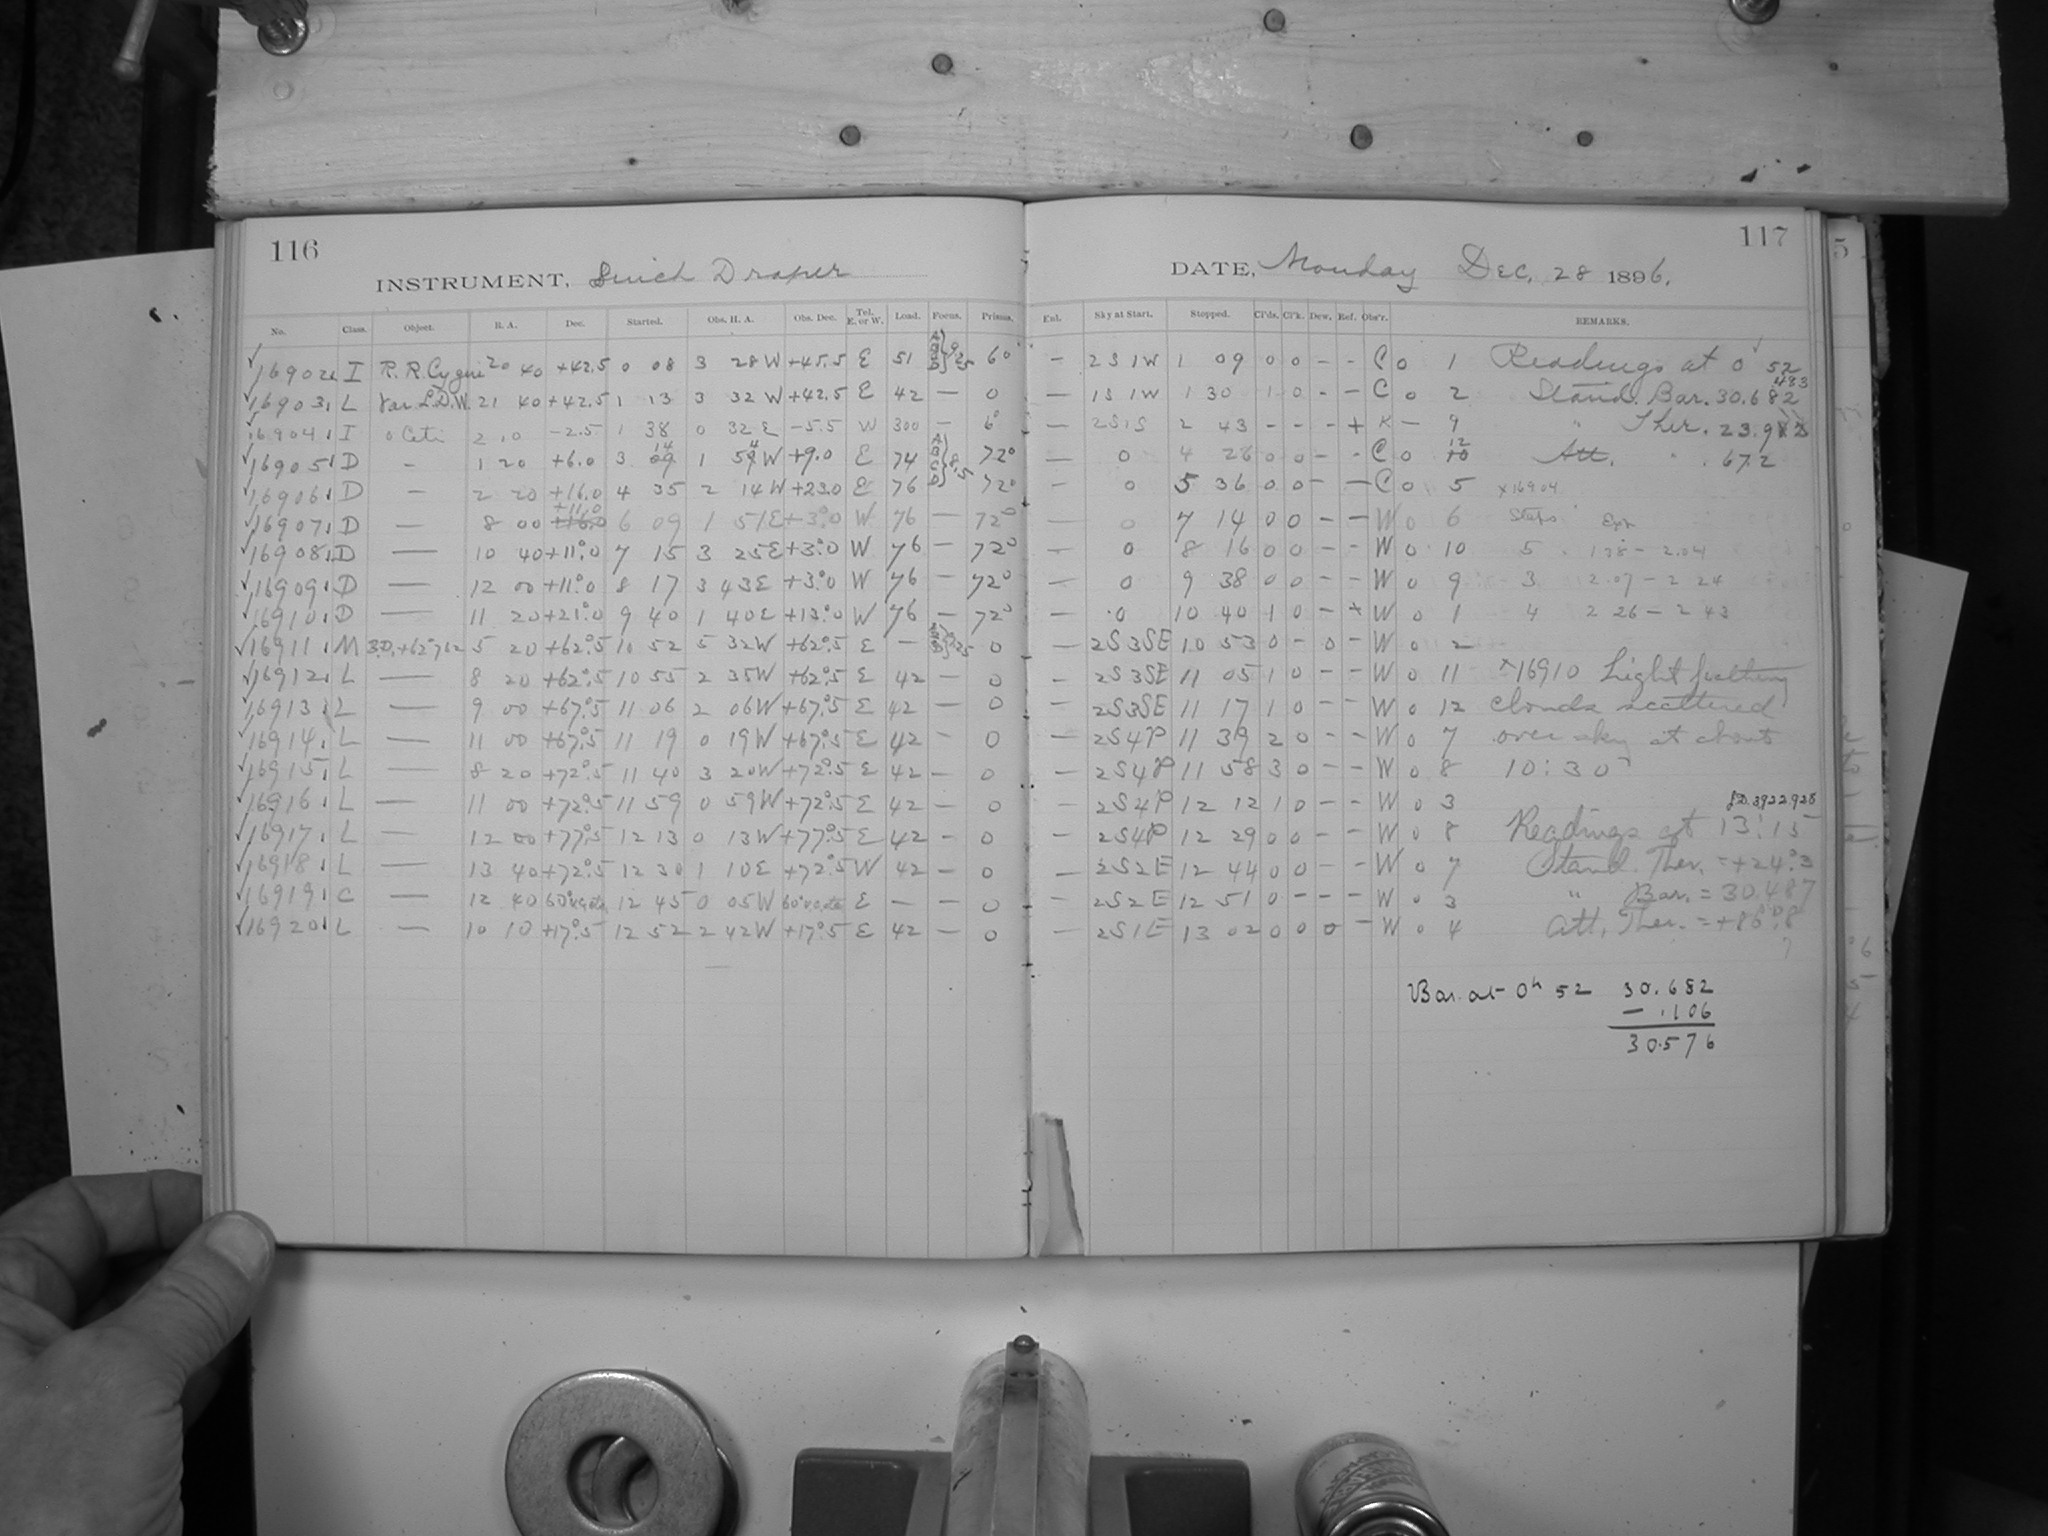 116
INSTRUMENT, 8 inch Draper
No. Class. Object. R. A. Dec. Started. Obs. H. A. Obs. Dec. Tel. E. or W. Load. Focus. Prisms.
16902 I R.R. Cygni 20 40 +42.5 0 08 3 28 W +45.5 E 51 6°
16903 L Var L.D.W. 21 40 +42.5 1 13 3 32 W +42.5 E 42 — 0
16904 I o Ceti 2 10 -2.5 1 38 0 32 E -5.5 W 300 — 6°
16905 D — 1 20 +6.0 3 14 1 54 W +9.0 E 74 72°
16906 D — 2 20 +16.0 4 35 2 14 W +23.0 E 76 72°
16907 D — 8 00 +11.0 6 09 1 51 E +3.0 W 76 — 72°
16908 D — 10 40 +11.0 7 15 3 25 E +3.0 W 76 — 72°
16909 D — 12 00 +11.0 8 17 3 43 E +3.0 W 76 — 72°
16910 D — 11 20 +21.0 9 40 1 40 E +13.0 W 76 — 72°
16911 M 5 20 +62.5 10 52 5 32 W +62.5 E — 0
16912 L — 8 20 +62.5 10 55 2 35 W +62.5 E 42 — 0
16913 L — 9 00 +67.5 11 06 2 06 W +67.5 E 42 — 0
16914 L — 11 00 +67.5 11 19 0 19 W +67.5 E 42 — 0
16915 L — 8 20 +72.5 11 40 3 20 W +72.5 E 42 — 0
16916 L — 11 00 +72.5 11 59 0 59 W +72.5 E 42 — 0
16917 L — 12 00 +77.5 12 13 0 13 W +77.5 E 42 — 0
16918 L — 13 40 +72.5 12 30 1 10 E +72.5 W 42 — 0
16919 C — 12 40 12 45 0 05 W E — — 0
16920 L — 10 10 +17.5 12 52 2 42 W +17.5 E 42 — 0
117
DATE, Monday Dec. 28 1896.
Enl. Sky at Start. Stopped. Cl'ds. Cl'k. Dew. Ref. Obs'r. REMARKS.
— 2S1W 1 09 0 0 - - C 0 1 Readings at 0 52
— 1S1W 1 30 1 0 - - C 0 2 Stand. Bar. 30.682
— 2S1S 2 43 - - - + K — 9 " Ther.
— 0 4 26 0 0 - - C 0 12 Att. 67.2
— 0 5 36 0 0 - - C 0 5 x16904
— 0 7 14 0 0 - - W 0 6 Steps Exp
— 0 8 16 0 0 - - W 0 10 5 1 38 - 2.04
— 0 9 38 0 0 - - W 0 9 3 2.07 - 2 24
— 0 10 40 1 0 - + W 0 1 4 2 26 - 2 43
— 2S3SE 10 53 0 - 0 - W 0 2
— 2S3SE 11 05 1 0 - - W 0 11 x16910 Light feathery
— 2S3SE 11 17 1 0 - - W 0 12 clouds scattered
— 2S4P 11 39 2 0 - - W 0 7 over sky at about
— 2S4P 11 58 3 0 - - W 0 8 10:30
— 2S4P 12 12 1 0 - - W 0 3
— 2S4P 12 29 0 0 - - W 0 8 Readings at 13:15
— 2S2E 12 44 0 0 - - W 0 7 Stand. Ther. = +24.3
— 2S2E 12 51 0 - - - W 0 3 " Bar. = 30.487
— 2S1E 13 02 0 0 0 - W 0 4 Att. Ther. = +86.8
?
Bar. at 0h 52 30.682
- .106
30.576